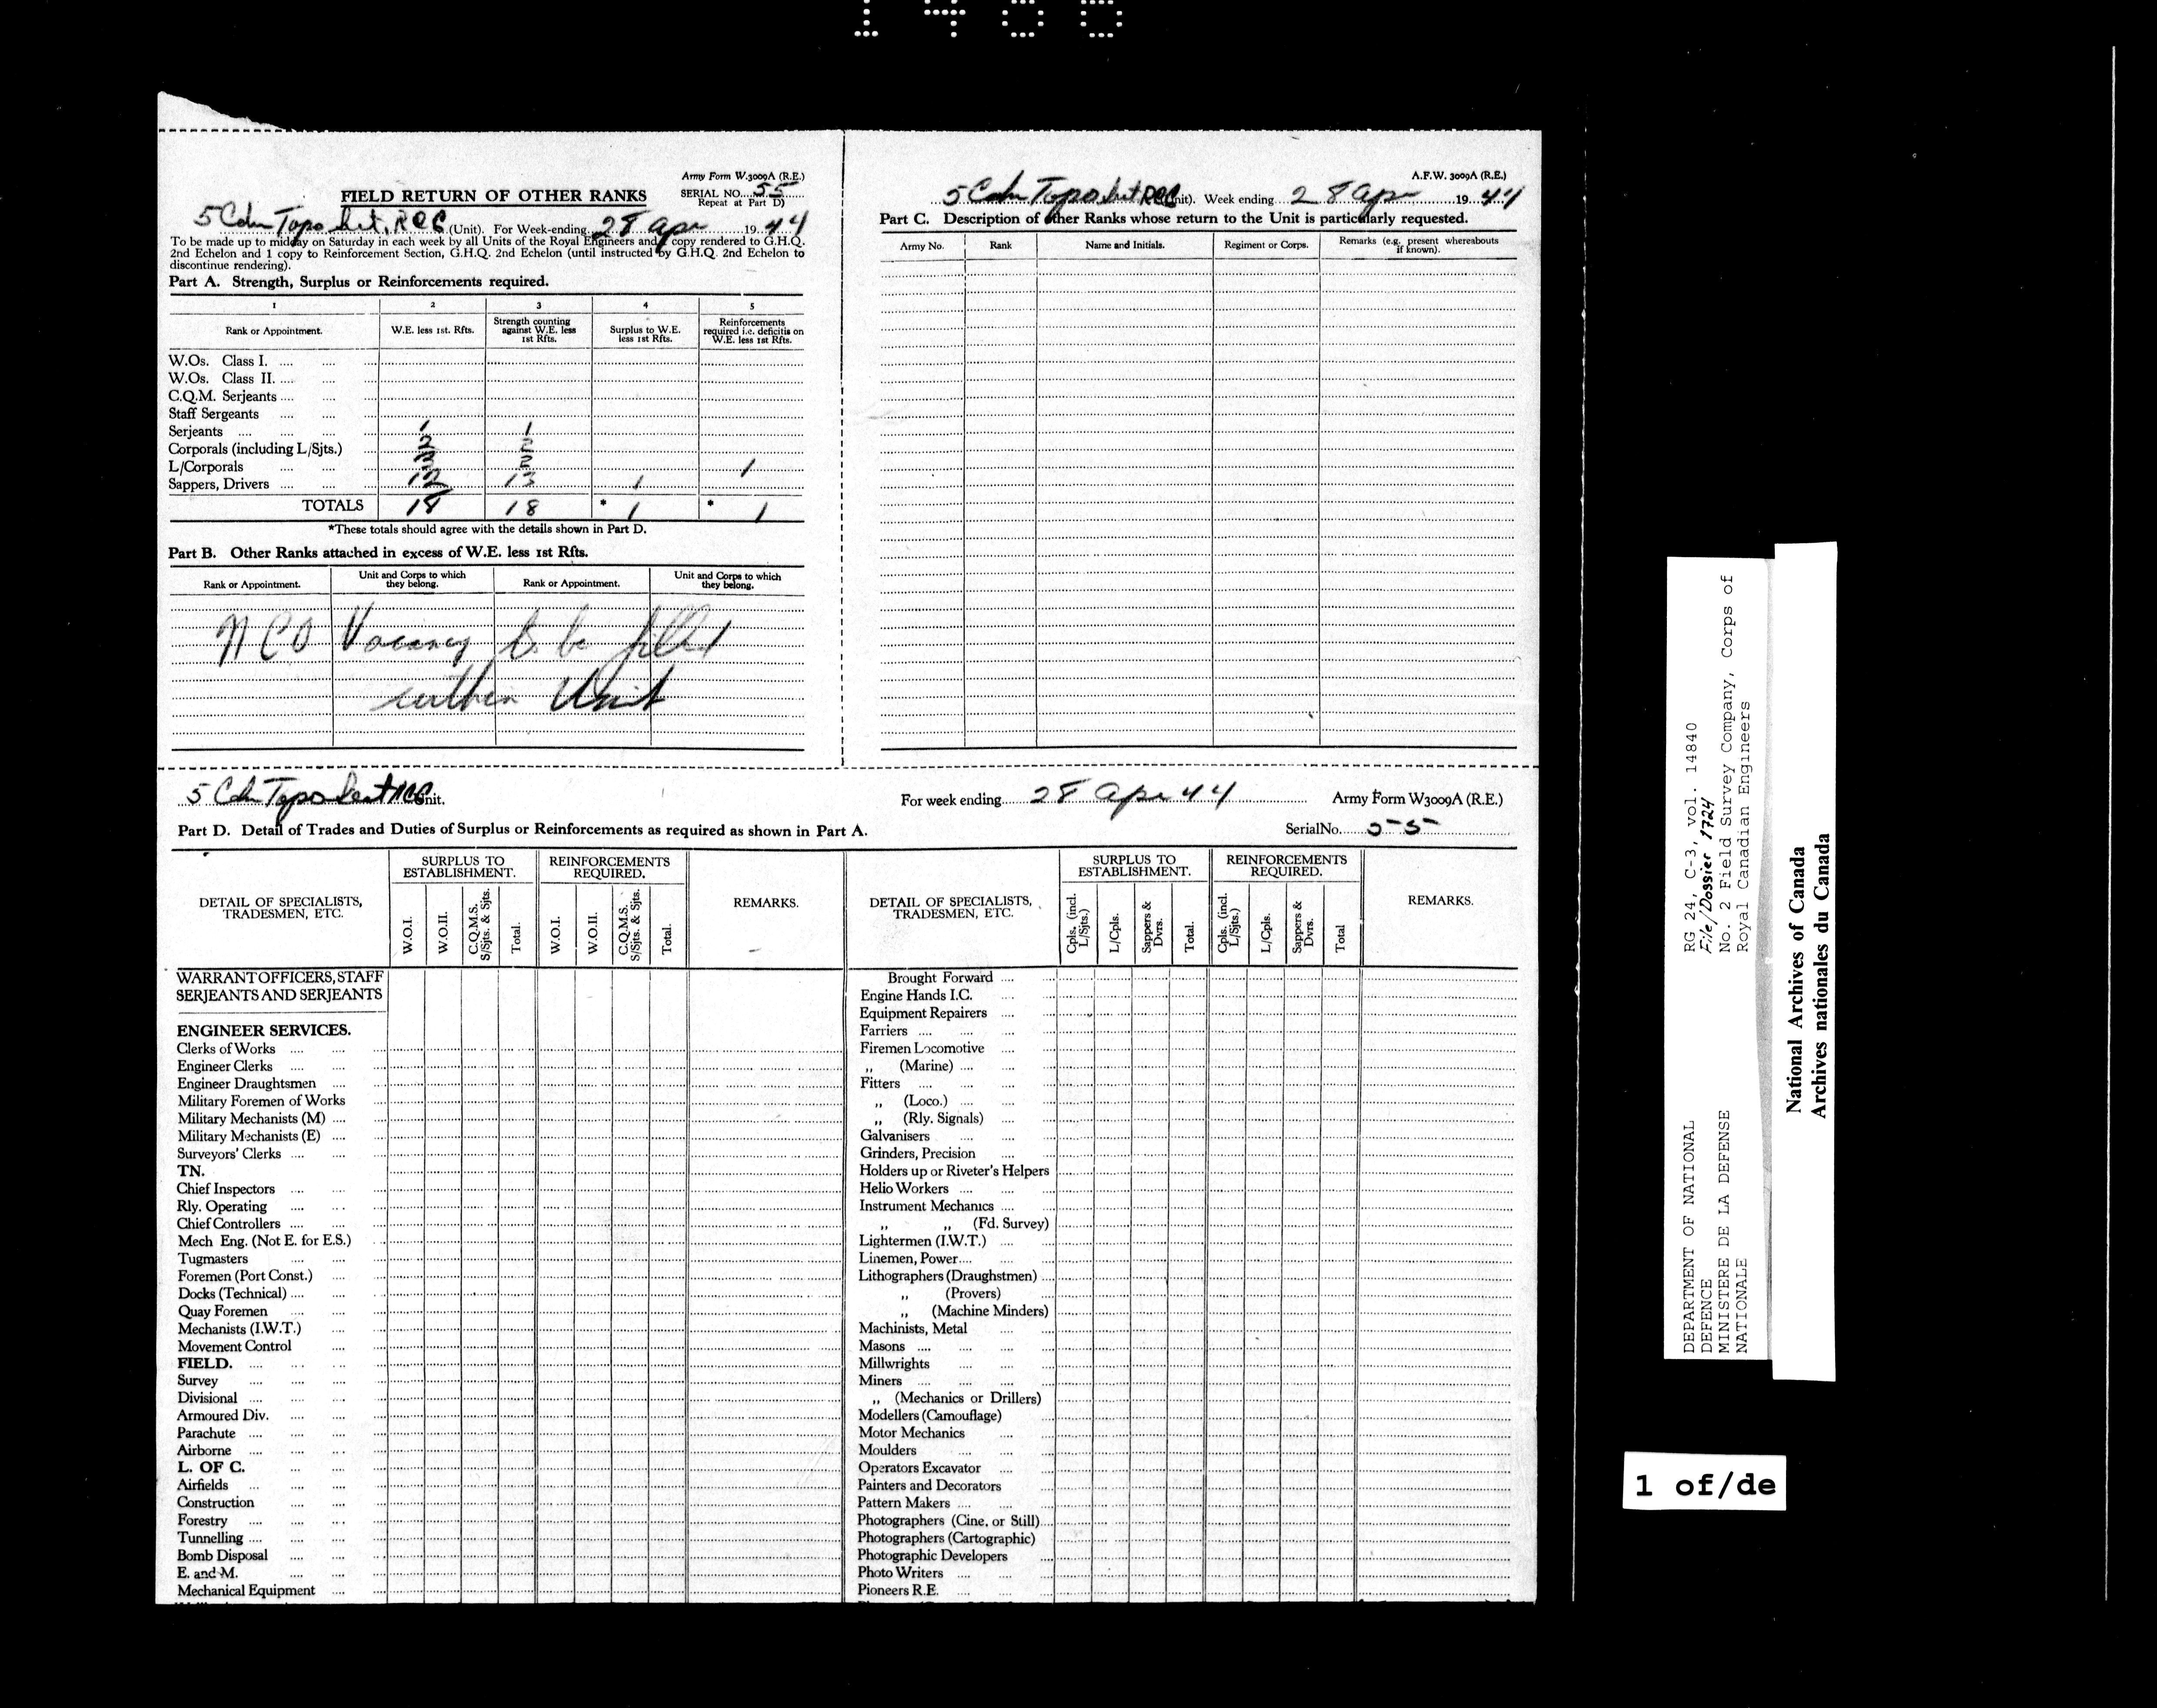 1400
Army Form W.3009A (R.E.)
FIELD RETURN OF OTHER RANKS
SERIAL NO....55
Repeat at Part D)
5 Cdn Topo Sect, RCE (Unit). For Week-ending 28 Apr 1944
To be made up to midday on Saturday in each week by all Units of the Royal Engineers and copy rendered to G.H.Q.
2nd Echelon and 1 copy to Reinforcement Section, G.H.Q. 2nd Echelon (until instructed by G.H.Q. 2nd Echelon to
discontinue rendering).
Part A. Strength, Surplus or Reinforcements required.
1 2 3 4 5
Rank or Appointment. W.E. less 1st. Rfts. Strength counting against W.E. less 1st Rfts. Surplus to W.E. less 1st Rfts. Reinforcements required i.e. deficitis on W.E. less 1st Rfts.
W.Os. Class I. ....
W.Os. Class II. ....
C.Q.M. Serjeants ....
Staff Sergeants ....
Serjeants .... 1 1
Corporals (including L/Sjts.) 2 2
L/Corporals .... 3 2 1
Sappers, Drivers .... 12 13 1
TOTALS 18 18 * 1 * 1
*These totals should agree with the details shown in Part D.
Part B. Other Ranks attached in excess of W.E. less 1st Rfts.
Rank or Appointment. Unit and Corps to which they belong. Rank or Appointment. Unit and Corps to which they belong.
NCO Vacancy to be filled
within Unit
A.F.W. 3009A (R.E.)
5 Cdn Topo Sect, RCE (Unit). Week ending 28 Apr 1944
Part C. Description of other Ranks whose return to the Unit is particularly requested.
Army No. Rank Name and Initials. Regiment or Corps. Remarks (e.g. present whereabouts if known).
5 Cdn Topo Sect RCE Unit. For week ending 28 Apr 44 Army Form W3009A (R.E.)
Part D. Detail of Trades and Duties of Surplus or Reinforcements as required as shown in Part A. Serial No. 55
DETAIL OF SPECIALISTS, TRADESMEN, ETC. SURPLUS TO ESTABLISHMENT. REINFORCEMENTS REQUIRED. REMARKS.
W.O.I. W.O.II. C.Q.M.S. S/Sjts. & Sjts. Total. W.O.I. W.O.II. C.Q.M.S. S/Sjts. & Sjts. Total.
WARRANT OFFICERS, STAFF
SERJEANTS AND SERJEANTS
ENGINEER SERVICES.
Clerks of Works ....
Engineer Clerks ....
Engineer Draughtsmen ....
Military Foremen of Works
Military Mechanists (M) ....
Military Mechanists (E) ....
Surveyors' Clerks ....
TN.
Chief Inspectors ....
Rly. Operating ....
Chief Controllers ....
Mech Eng. (Not E. for E.S.)
Tugmasters ....
Foremen (Port Const.) ....
Docks (Technical) ....
Quay Foremen ....
Mechanists (I.W.T.) ....
Movement Control ....
FIELD. ....
Survey ....
Divisional ....
Armoured Div. ....
Parachute ....
Airborne ....
L. OF C. ....
Airfields ....
Construction ....
Forestry ....
Tunnelling ....
Bomb Disposal ....
E. and M. ....
Mechanical Equipment ....
DETAIL OF SPECIALISTS, TRADESMEN, ETC. SURPLUS TO ESTABLISHMENT. REINFORCEMENTS REQUIRED. REMARKS.
Cpls. (incl. L/Sjts.) L/Cpls. Sappers & Dvrs. Total. Cpls. (incl. L/Sjts.) L/Cpls. Sappers & Dvrs. Total
Brought Forward ....
Engine Hands I.C. ....
Equipment Repairers ....
Farriers ....
Firemen Locomotive ....
,, (Marine) ....
Fitters ....
,, (Loco.) ....
,, (Rly. Signals) ....
Galvanisers ....
Grinders, Precision ....
Holders up or Riveter's Helpers
Helio Workers ....
Instrument Mechanics ....
,, ,, (Fd. Survey)
Lightermen (I.W.T.) ....
Linemen, Power....
Lithographers (Draughstmen) ....
,, (Provers) ....
,, (Machine Minders)
Machinists, Metal ....
Masons ....
Millwrights ....
Miners ....
,, (Mechanics or Drillers)
Modellers (Camouflage) ....
Motor Mechanics ....
Moulders ....
Operators Excavator ....
Painters and Decorators ....
Pattern Makers ....
Photographers (Cine, or Still)....
Photographers (Cartographic)
Photographic Developers ....
Photo Writers ....
Pioneers R.E. ....
DEPARTMENT OF NATIONAL
DEFENCE
MINISTERE DE LA DEFENSE
NATIONALE
RG 24, C-3, vol. 14840
File/Dossier 1724
No. 2 Field Survey Company, Corps of
Royal Canadian Engineers
National Archives of Canada
Archives nationales du Canada
1 of/de